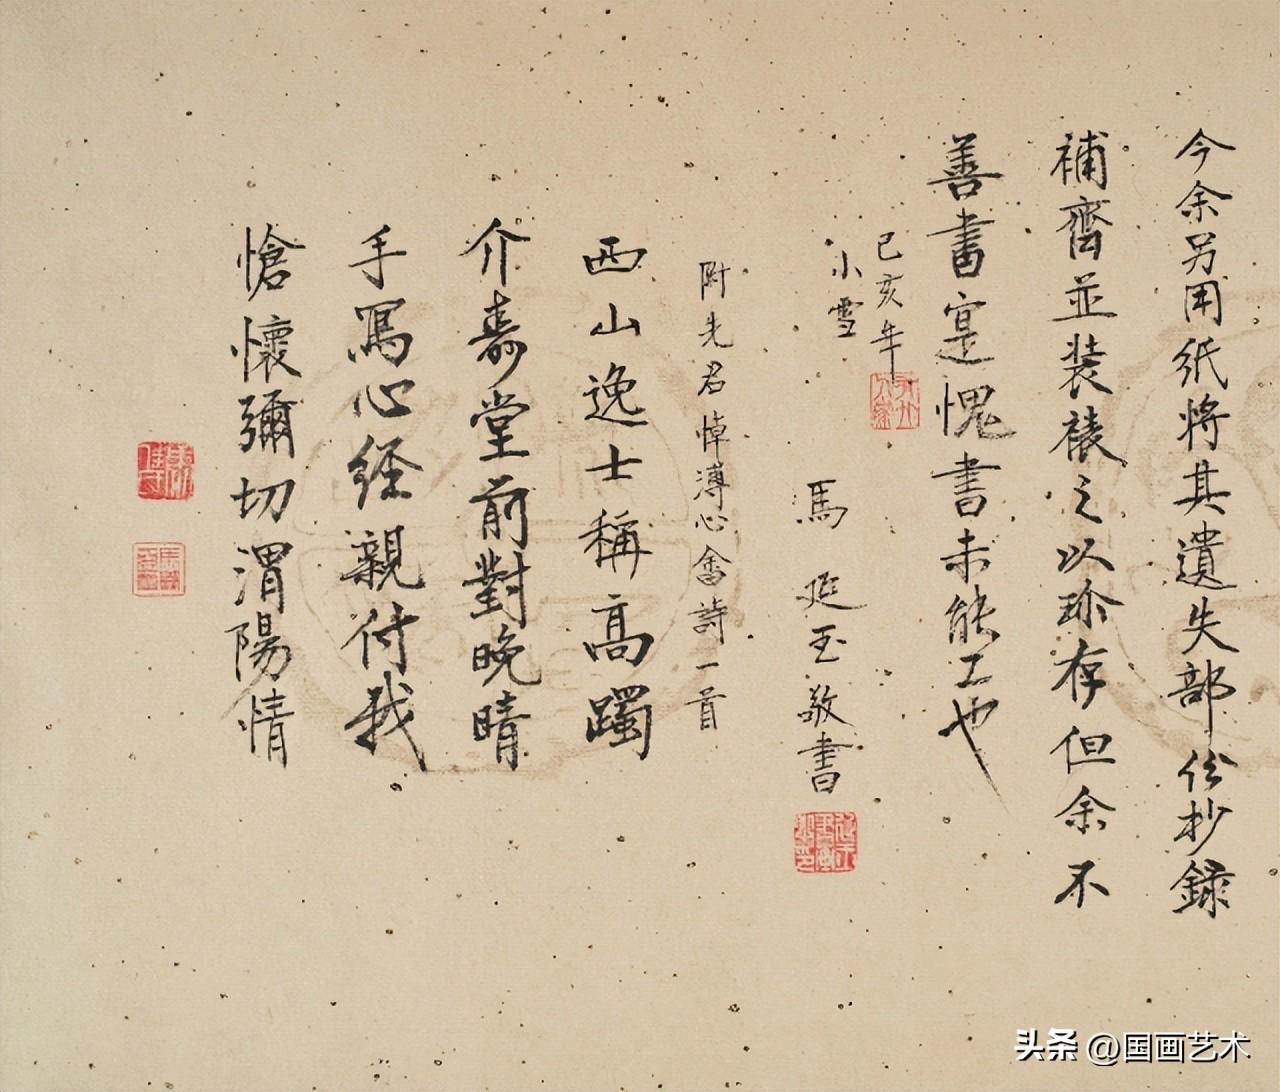 今余另用纸将其遺失部份抄録
補齊並装裱之以珍存但余不
善書寔愧書未能工也
己亥年
小雪
馬延玉敬書
附先君悼溥心畬詩一首
西山逸士稱高躅
介壽堂前對晚晴
手寫心经親付我
愴懷彌切渭陽情
头条 @国画艺术